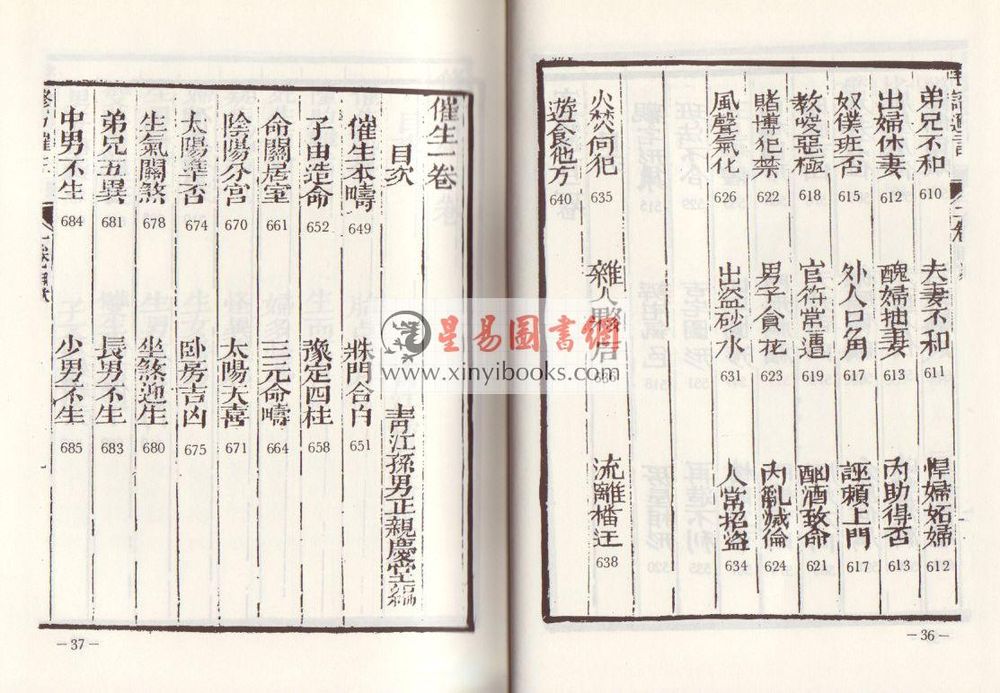 弟兄不和 610 夫妻不和 611 悍婦妬婦 612
出婦休妻 612 醜婦抽妻 613 內助得否 613
奴僕班否 615 外人口角 617 誣賴上門 617
教唆惡極 618 官符常遭 619 酗酒致命 621
賭博犯禁 622 男子貪花 623 內亂滅倫 624
風聲氣化 626 出盜砂水 631 人常招盜 634
火焚何犯 635 雜人夥居 636 流離
遊食他方 640
－36－
催生一卷
目次 青江孫男正親慶堂編
催生本疇 649 殊門合白 651
子由造命 652 豫定四柱 658
命關居室 661 三元命疇 664
陰陽分宮 670 太陽天喜 671
太陽準否 674 卧房吉凶 675
生氣關煞 678 坐煞迎生 680
弟兄五異 681 長男不生 683
中男不生 684 少男不生 685
－37－
星易圖書網
www.xinyibooks.com